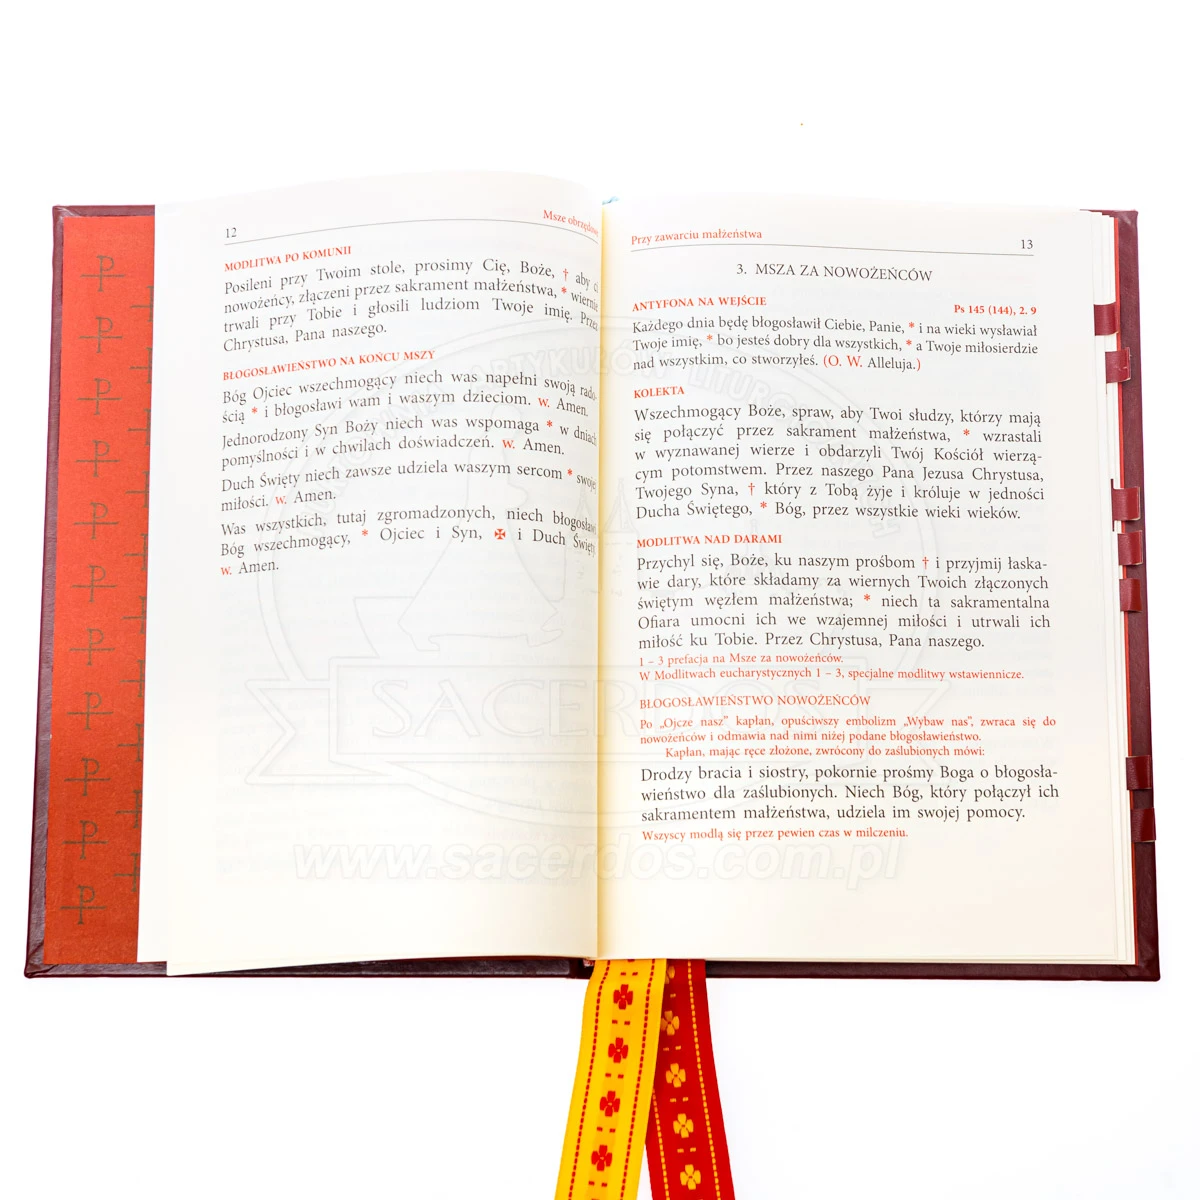 12
Msze obrzędowe
MODLITWA PO KOMUNII
Posileni przy Twoim stole, prosimy Cię, Boże, † aby ci
nowożeńcy, złączeni przez sakrament małżeństwa, * wiernie
trwali przy Tobie i głosili ludziom Twoje imię. Przez
Chrystusa, Pana naszego.
BŁOGOSŁAWIEŃSTWO NA KOŃCU MSZY
Bóg Ojciec wszechmogący niech was napełni swoją rado-
ścią * i błogosławi wam i waszym dzieciom. W. Amen.
Jednorodzony Syn Boży niech was wspomaga * w dniach
pomyślności i w chwilach doświadczeń. W. Amen.
Duch Święty niech zawsze udziela waszym sercom * swojej
miłości. W. Amen.
Was wszystkich, tutaj zgromadzonych, niech błogosławi
Bóg wszechmogący, * Ojciec i Syn, ✠ i Duch Święty.
W. Amen.
Przy zawarciu małżeństwa
13
3. MSZA ZA NOWOŻEŃCÓW
ANTYFONA NA WEJŚCIE
Ps 145 (144), 2. 9
Każdego dnia będę błogosławił Ciebie, Panie, * i na wieki wysławiał
Twoje imię, * bo jesteś dobry dla wszystkich, * a Twoje miłosierdzie
nad wszystkim, co stworzyłeś. (O. W. Alleluja.)
KOLEKTA
Wszechmogący Boże, spraw, aby Twoi słudzy, którzy mają
się połączyć przez sakrament małżeństwa, * wzrastali
w wyznawanej wierze i obdarzyli Twój Kościół wierzą-
cym potomstwem. Przez naszego Pana Jezusa Chrystusa,
Twojego Syna, † który z Tobą żyje i króluje w jedności
Ducha Świętego, * Bóg, przez wszystkie wieki wieków.
MODLITWA NAD DARAMI
Przychyl się, Boże, ku naszym prośbom † i przyjmij łaska-
wie dary, które składamy za wiernych Twoich złączonych
świętym węzłem małżeństwa; * niech ta sakramentalna
Ofiara umocni ich we wzajemnej miłości i utrwali ich
miłość ku Tobie. Przez Chrystusa, Pana naszego.
1 – 3 prefacja na Msze za nowożeńców.
W Modlitwach eucharystycznych 1 – 3, specjalne modlitwy wstawiennicze.
BŁOGOSŁAWIEŃSTWO NOWOŻEŃCÓW
Po „Ojcze nasz” kapłan, opuściwszy embolizm „Wybaw nas”, zwraca się do
nowożeńców i odmawia nad nimi niżej podane błogosławieństwo.
Kapłan, mając ręce złożone, zwrócony do zaślubionych mówi:
Drodzy bracia i siostry, pokornie prośmy Boga o błogosła-
wieństwo dla zaślubionych. Niech Bóg, który połączył ich
sakramentem małżeństwa, udziela im swojej pomocy.
Wszyscy modlą się przez pewien czas w milczeniu.
SACERDOS
www.sacerdos.com.pl